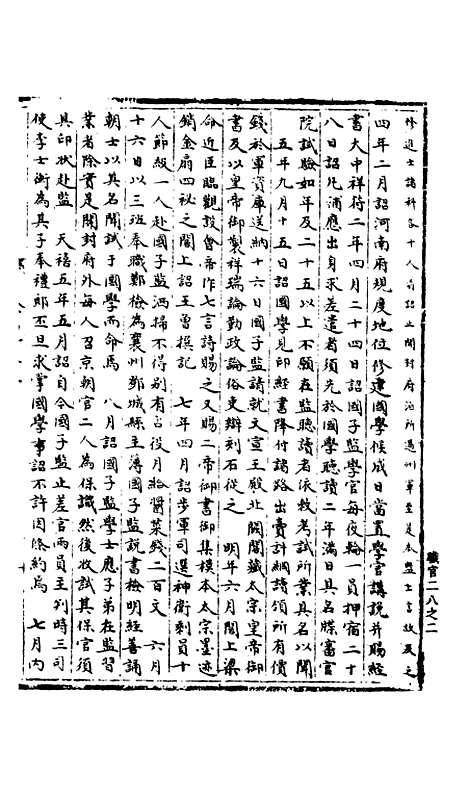 修進士諸科各十人有詔止開封府洎所過州軍並是本監土著故及之
四年二月詔河南府規度地位修建國學候成日當置學官講說并賜經
書大中祥符二年四月二十四日詔國子監學官每夜輪一員押宿二十
八日詔凡蒲應出身求差遣者須先於國學聽讀二年滿日具名牒審官
院試驗如年及二十五以上不願在監聽讀者依敕考試所業具名以聞
五年九月十五日詔國學見印經書降付諸路出賣計綱讀領所有價
錢於軍資庫送納十六日國子監請就文宣王殿北闕閣藏太宗皇帝御
書及以皇帝御製祥瑞論勤政論俗吏辯刻石從之 明年六月閣上梁
命近臣臨觀設會帝作七言詩賜之又賜二帝御書御集摸本太宗墨迹
銷金扇四祕之閣上詔王曾撰記 七年四月詔步軍司選神衛剩員十
人節級一人赴國子監洒掃不得別有占役月給醬菜錢二百文 六月
十六日以三班奉職鄭檢為襄州鄧城縣主簿國子監說書檢明經善誦
朝士以其名聞試于國學而命焉 八月詔國子監學士應子弟在監習
業者除實是開封府外每人召京朝官二人為保識然後收試其保官須
具印狀赴監 天禧五年五月詔自今國子監止差官兩員主判時三司
使李士衡為其子奉禮郎丕旦求掌國學事詔不許因條約焉 七月內
職官二八之二